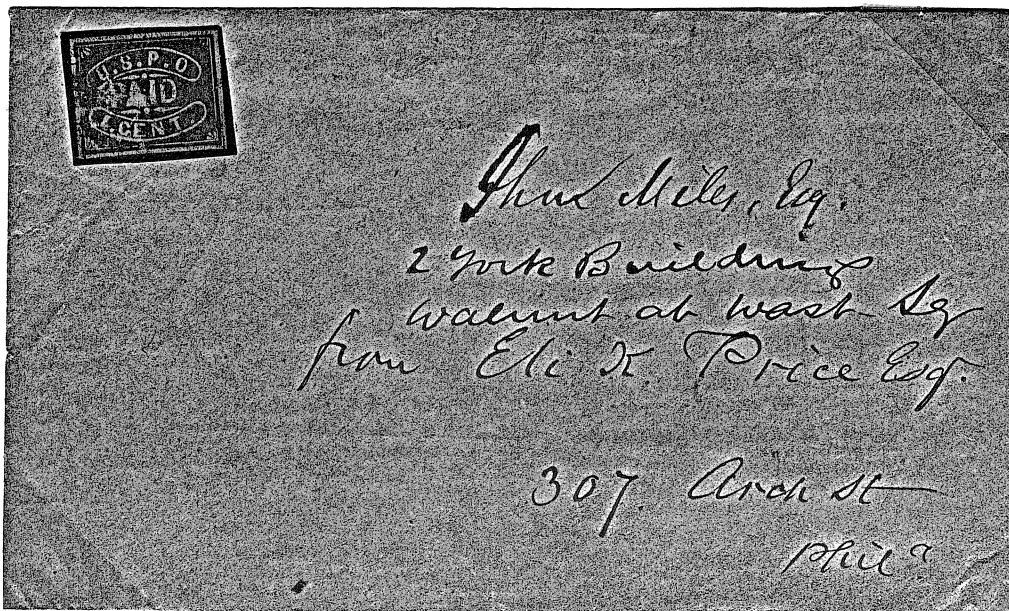 U.S.P.O
PAID
1 CENT
Miles, Esq.
2 York Buildings
Walnut at Wash Sq
from Eli K. Price Esq.
307. Arch St
Phila